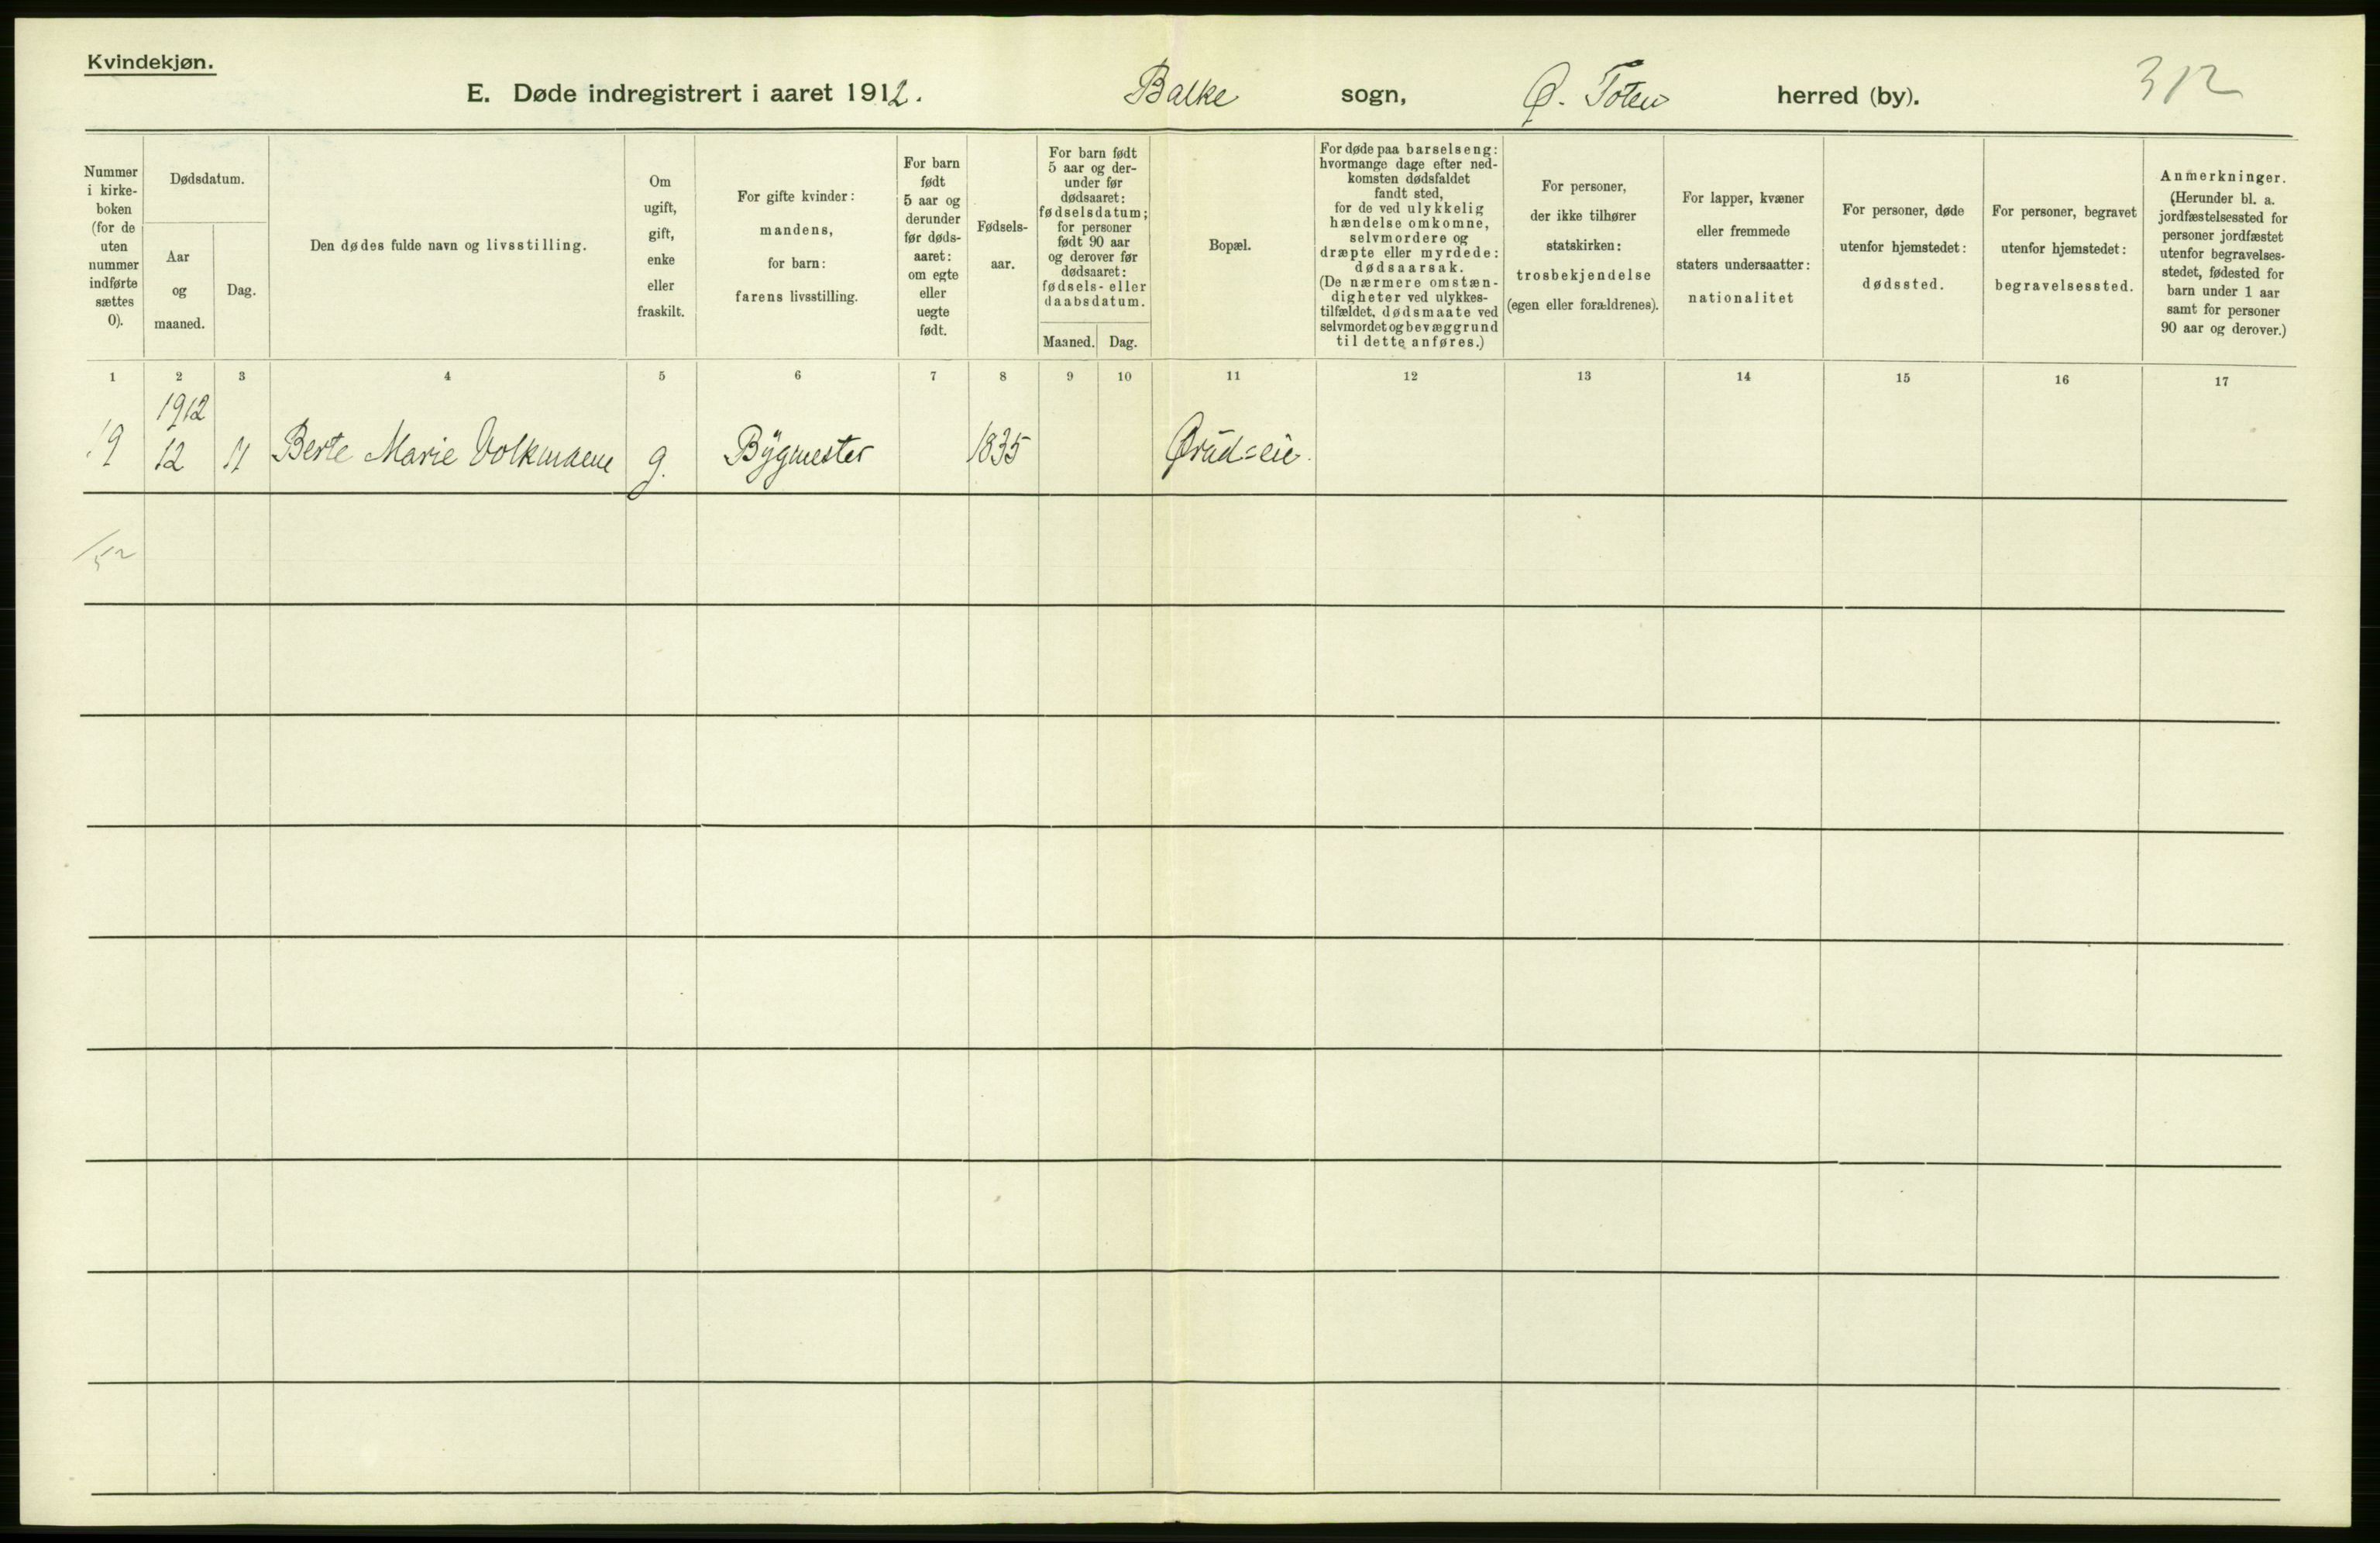 Kvindekjøn.
E. Døde indregistrert i aaret 1912. Balke sogn, Ø. Toten herred (by). 312
Nummer
i kirke-
boken
(for de
uten
nummer
indførte
sættes
0).
Dødsdatum.
Aar
og
maaned.
Dag.
Den dødes fulde navn og livsstilling.
Om
ugift,
gift,
enke
eller
fraskilt.
For gifte kvinder:
mandens,
for barn:
farens livsstilling.
For barn
født
5 aar og
derunder
før døds-
aaret:
om egte
eller
uegte
født.
Fødsels-
aar.
For barn født
5 aar og der-
under før
dødsaaret:
fødselsdatum;
for personer
født 90 aar
og derover før
dødsaaret:
fødsels- eller
daabsdatum.
Maaned. Dag.
Bopæl.
For døde paa barselseng:
hvormange dage efter ned-
komsten dødsfaldet
fandt sted,
for de ved ulykkelig
hændelse omkomne,
selvmordere og
dræpte eller myrdede:
dødsaarsak.
(De nærmere omstæn-
digheter ved ulykkes-
tilfældet, dødsmaate ved
selvmordet og bevæggrund
til dette anføres.)
For personer,
der ikke tilhører
statskirken:
trosbekjendelse
(egen eller forældrenes).
For lapper, kvæner
eller fremmede
staters undersaatter:
nationalitet
For personer, døde
utenfor hjemstedet:
dødssted.
For personer, begravet
utenfor hjemstedet:
begravelsessted.
Anmerkninger.
(Herunder bl. a.
jordfæstelsessted for
personer jordfæstet
utenfor begravelses-
stedet, fødested for
barn under 1 aar
samt for personer
90 aar og derover.)
1 2 3 4 5 6 7 8 9 10 11 12 13 14 15 16 17
1912
19 12 11 Berte Marie Volkmann g. Bygmester 1835 Ørud=eie.